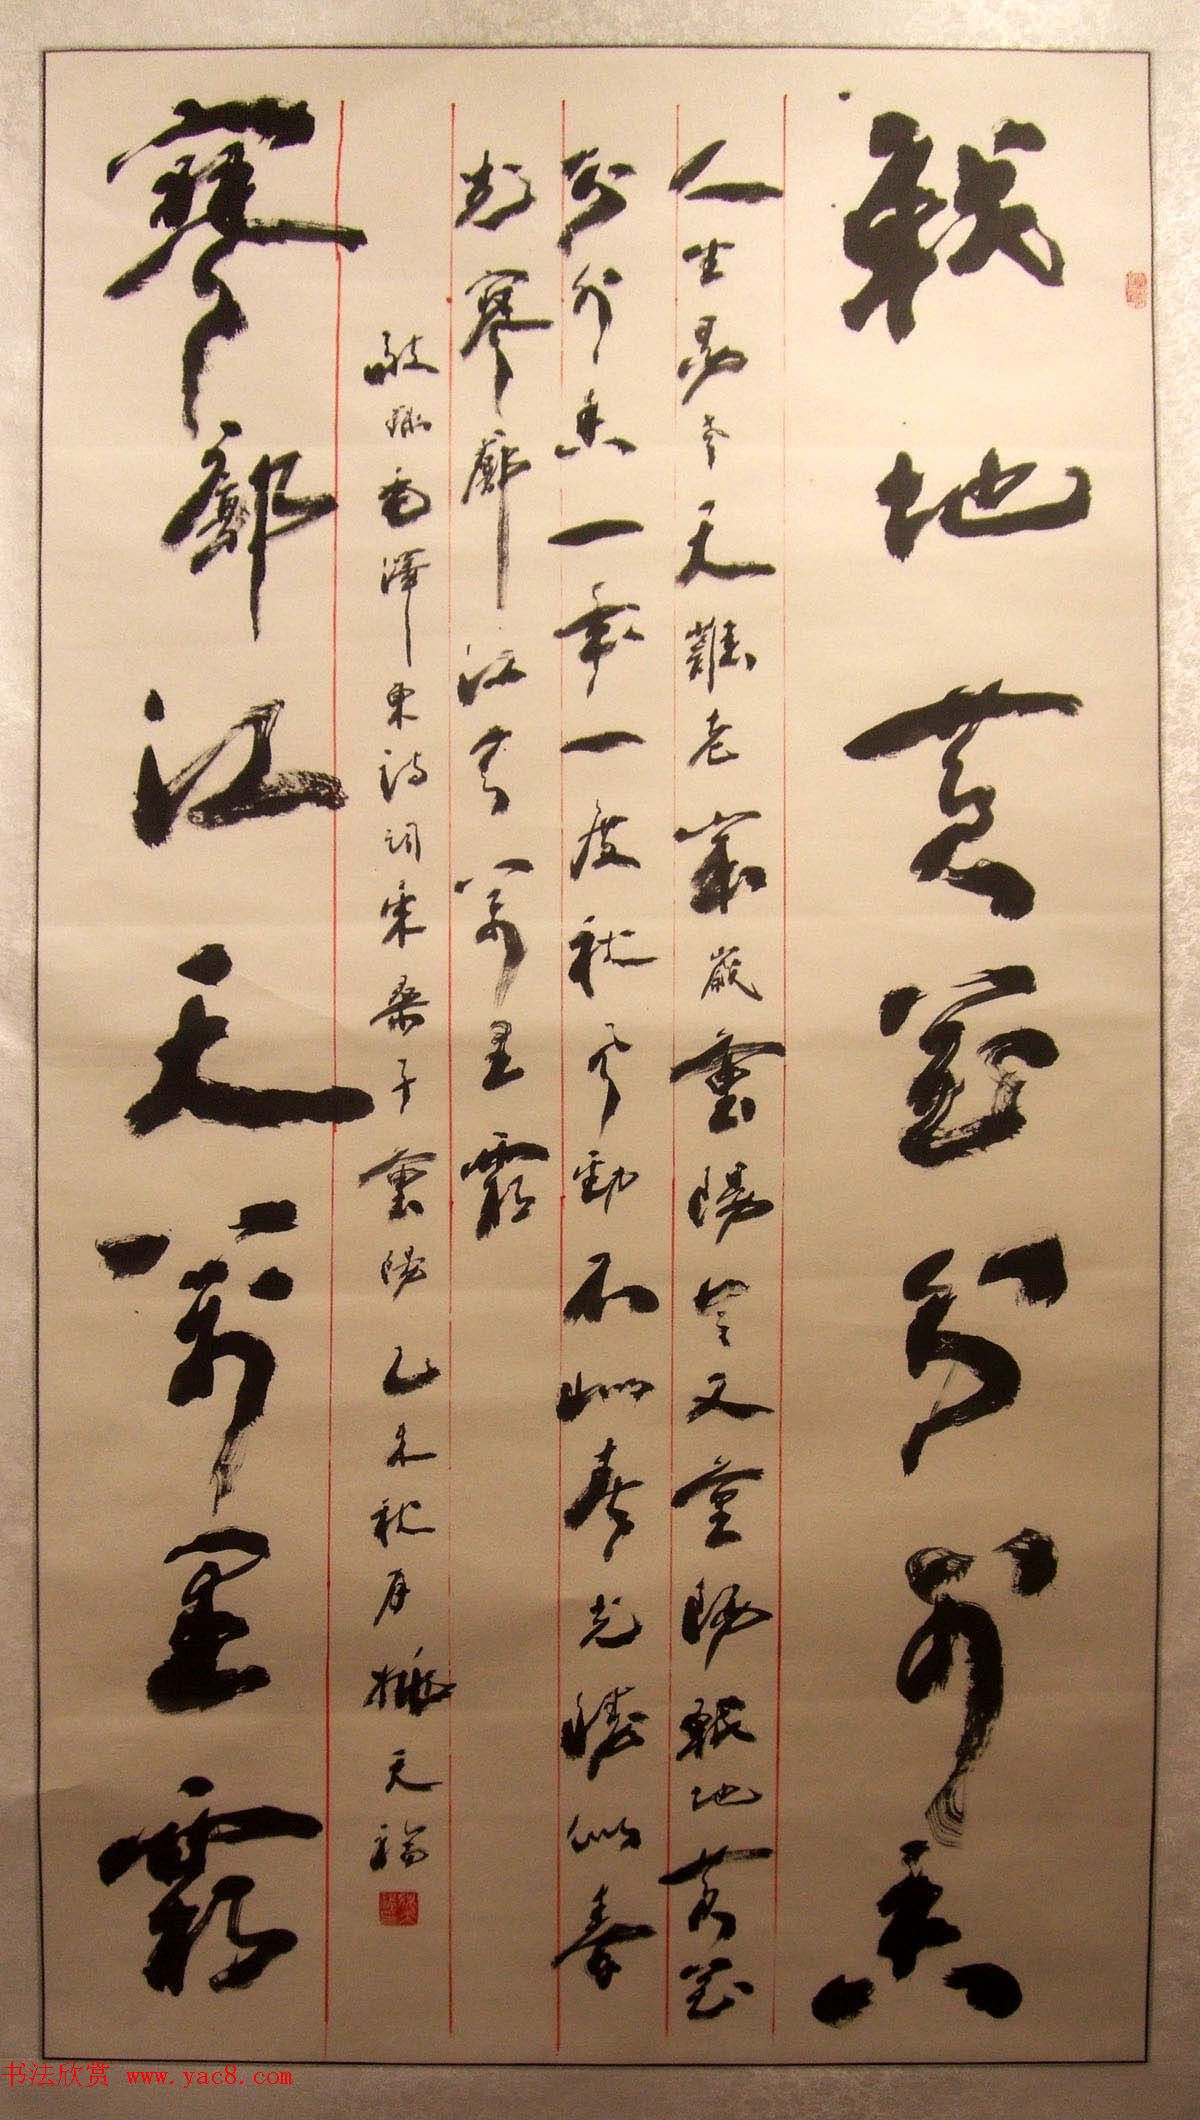 戰地黃花分外香
人生易老天難老歲歲重陽今又重陽戰地黃花
分外香一年一度秋風勁不似春光勝似春
光寥廓江天萬里霜
敬錄毛澤東詩詞采桑子重陽 乙未秋月 天福
寥廓江天萬里霜
书法欣赏 www.yac8.com